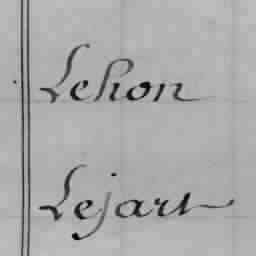 Lehon
Lejart